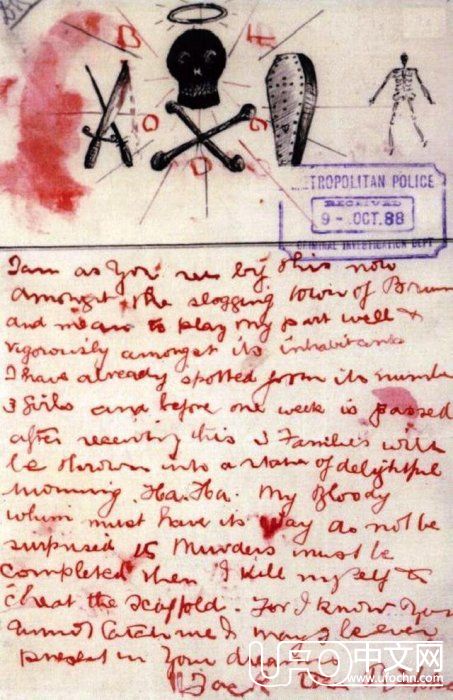 B F
O G
D
TROPOLITAN POLICE
RECEIVED
9 - .OCT.88
CRIMINAL INVESTIGATION DEPT
I am as you see by this now
amongst the slogging town of Brum
and mean to play my part well &
vigorously amongst its inhabitants
I have already spotted from its numbe
3 girls and before one week is passed
after receiving this 3 Families will
be thrown into a state of delightful
mourning. Ha. Ha. My Bloody
whim must have its way do not be
surprised 15 Murders must be
completed then I kill myself to
cheat the scaffold. For I know you
cannot catch me & I may be even
present in your
Jack the
UFO中文网
www.ufochn.com